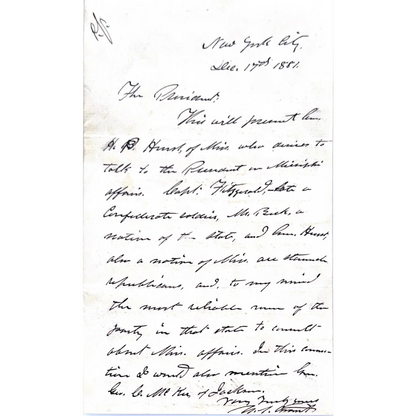 New York City,
Dec. 17th 1881.
The President:
This will present Gen
H. B. Hurst, of Miss who desires to
talk to the President on Mississippi
affairs. Capt. Fitzgerald, late a
Confederate soldier, Mr. Beck, a
native of the state, and Gen. Hurst,
also a native of Miss. are staunch
republicans, and, to my mind
the most reliable men of the
party in that state to consult
about Miss. affairs. In this connec-
tion I would also mention Gen.
Geo. C. McKee of Jackson.
Very truly yours
U. S. Grant